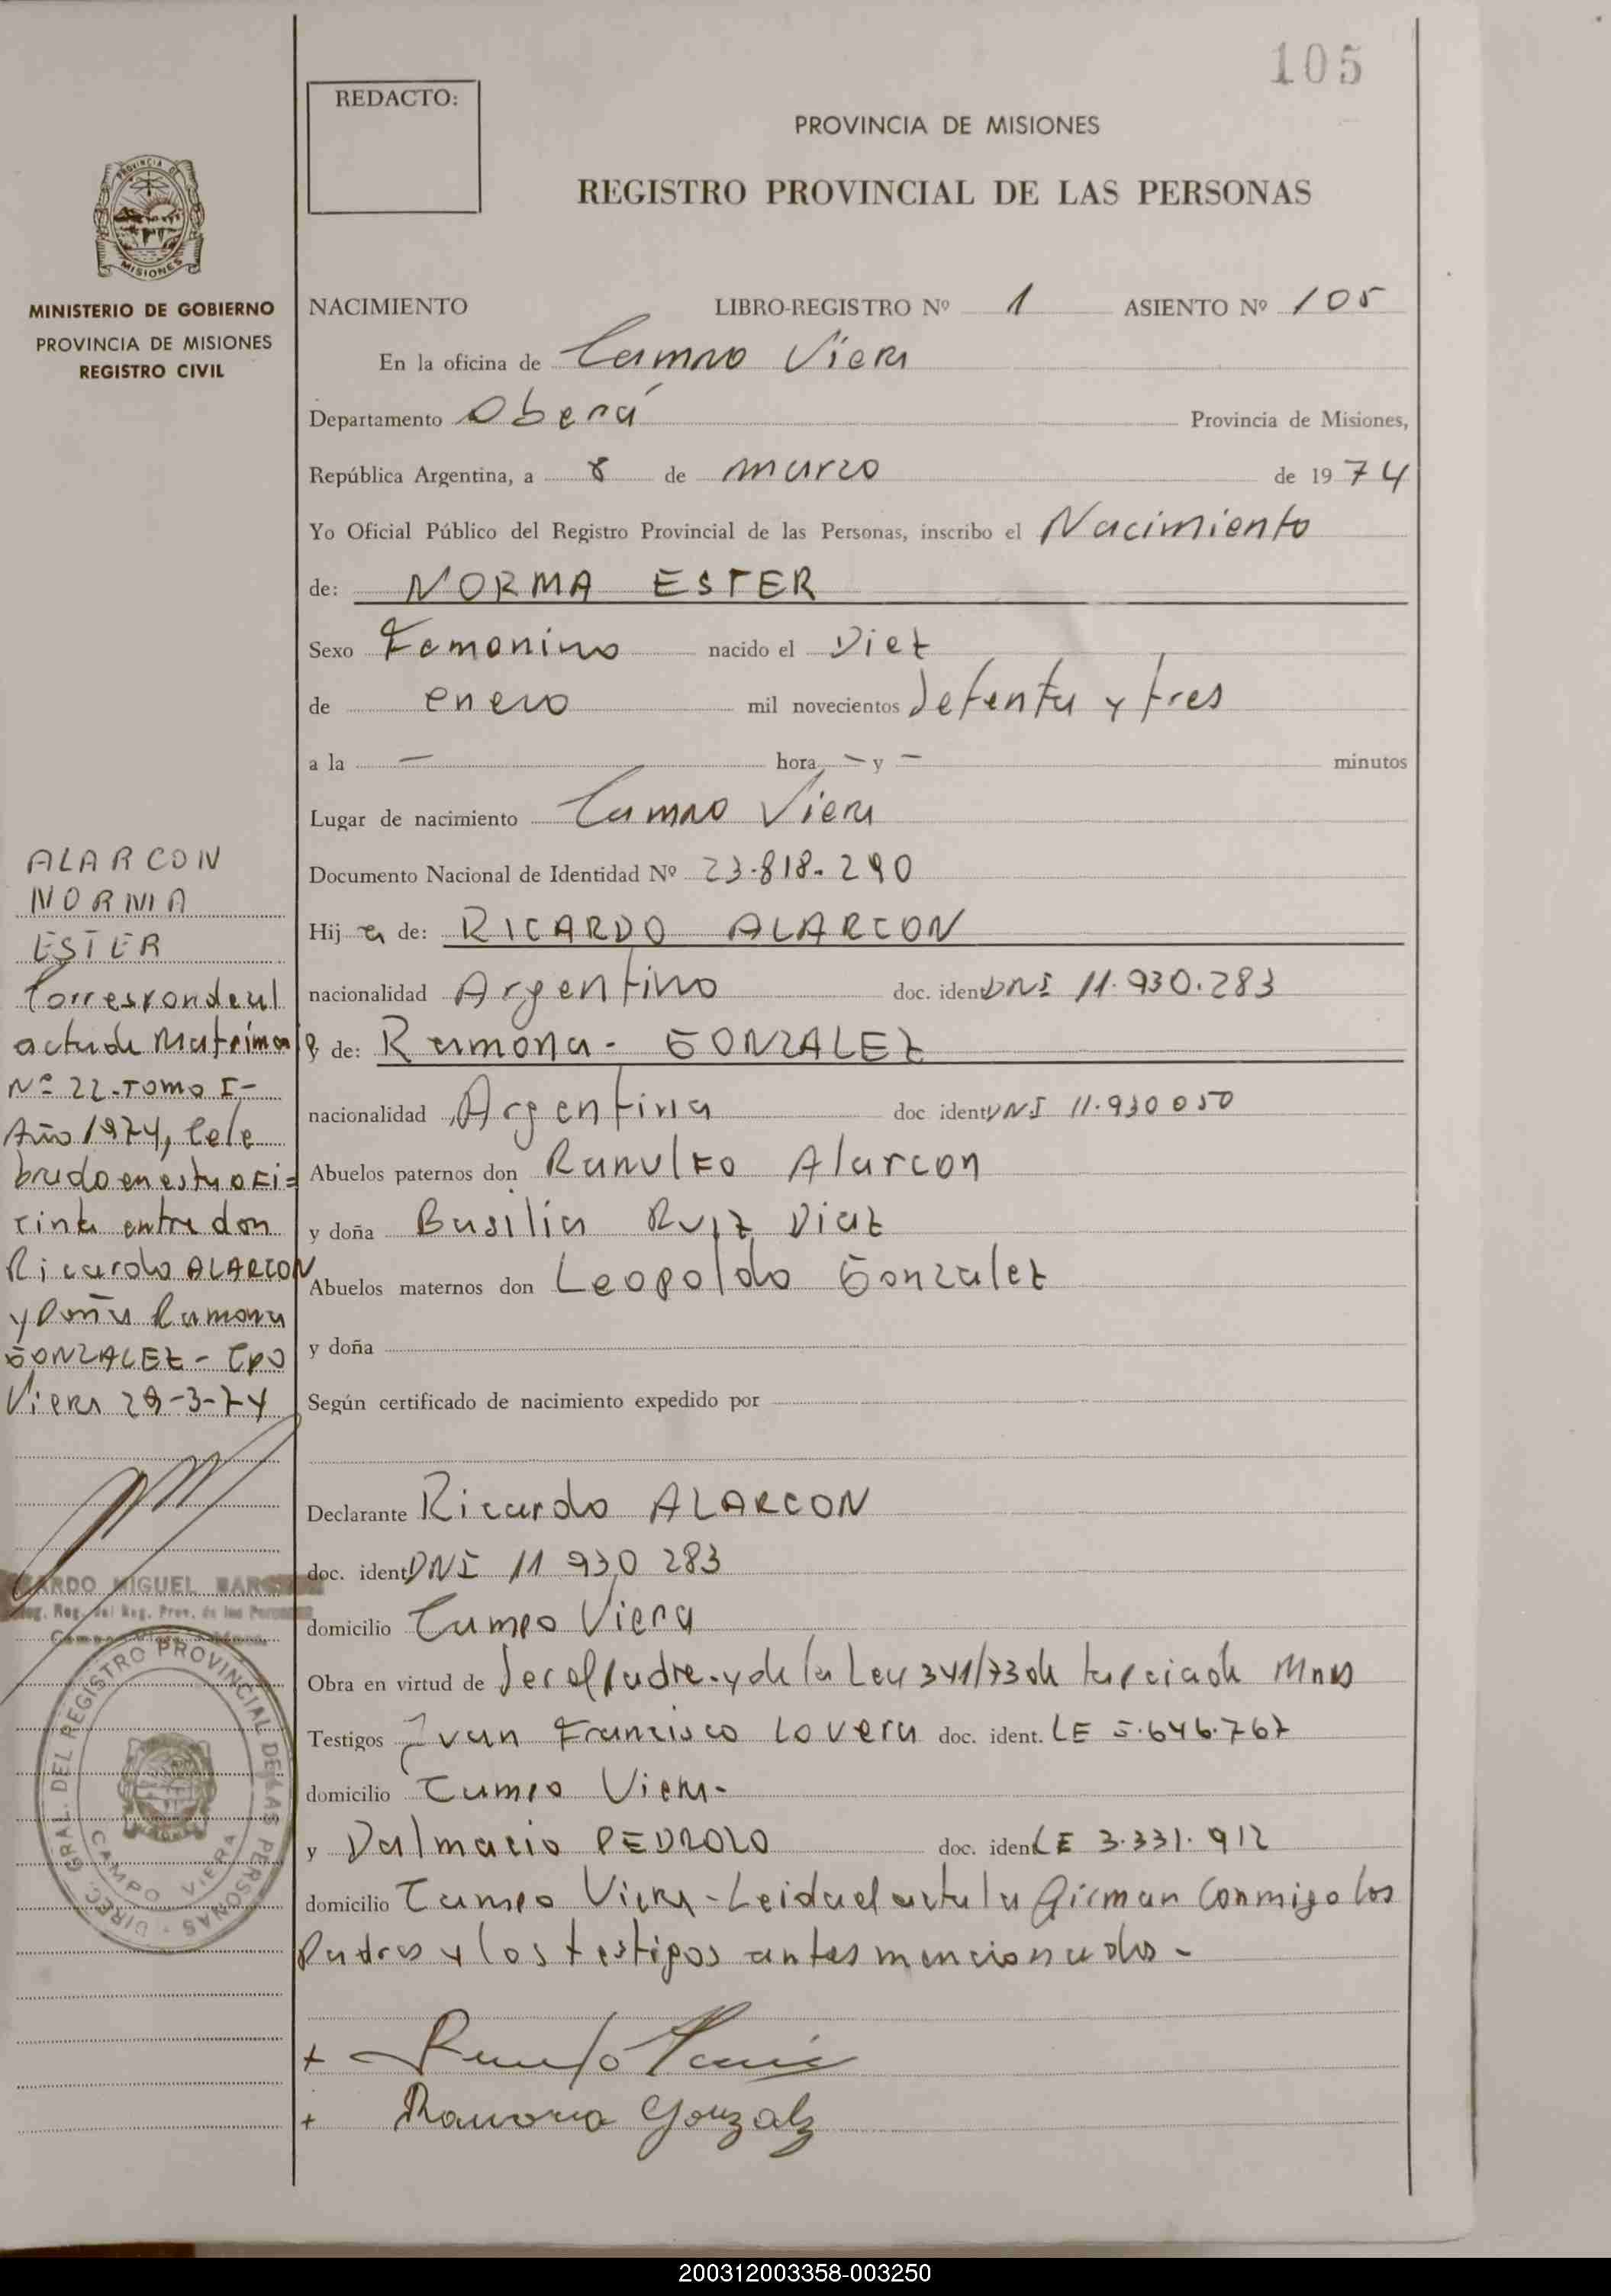 105
REDACTO:
PROVINCIA DE MISIONES
REGISTRO PROVINCIAL DE LAS PERSONAS
PROVINCIA DE
MISIONES
MINISTERIO DE GOBIERNO
PROVINCIA DE MISIONES
REGISTRO CIVIL
NACIMIENTO LIBRO-REGISTRO Nº 1 ASIENTO Nº 105
En la oficina de Campo Viera
Departamento Oberá Provincia de Misiones,
República Argentina, a 8 de marzo de 1974
Yo Oficial Público del Registro Provincial de las Personas, inscribo el Nacimiento
de: NORMA ESTER
Sexo Femenino nacido el Diez
de enero mil novecientos setenta y tres
a la — hora — y — minutos
Lugar de nacimiento Campo Viera
Documento Nacional de Identidad Nº 23.818.290
Hij a de: RICARDO ALARCON
nacionalidad Argentino doc. ident. DNI 11.930.283
y de: Ramona - GONZALEZ
nacionalidad Argentina doc ident. DNI 11.930 050
Abuelos paternos don Ranulfo Alarcon
y doña Basilia Ruiz Diaz
Abuelos maternos don Leopoldo Gonzalez
y doña
Según certificado de nacimiento expedido por
Declarante Ricardo ALARCON
doc. ident. DNI 11 930 283
domicilio Campo Viera
Obra en virtud de ser el padre - y de la Ley 341/73 de
Testigos Juan Francisco Lovera doc. ident. LE 5.646.767
domicilio Campo Viera -
y Dalmacio PEDROZO doc. ident. LE 3.331.912
domicilio Campo Viera - Leida el acta la firman conmigo los
Padres y los testigos antes mencionados -
+
+ Ramona Gonzalz
ALARCON
NORMA
ESTER
Corresponde al
acta de Matrimon
Nº 22 - Tomo I -
Año 1974, Cele
brado en esta ofi=
cina entre don
Ricardo ALARCON
y Doña Ramona
GONZALEZ - Cpo
Viera 29-3-74
MIGUEL
del Reg. Prov. de las
DIREC. GRAL. DEL REGISTRO PROVINCIAL DE LAS PERSONAS
CAMPO VIERA
200312003358-003250